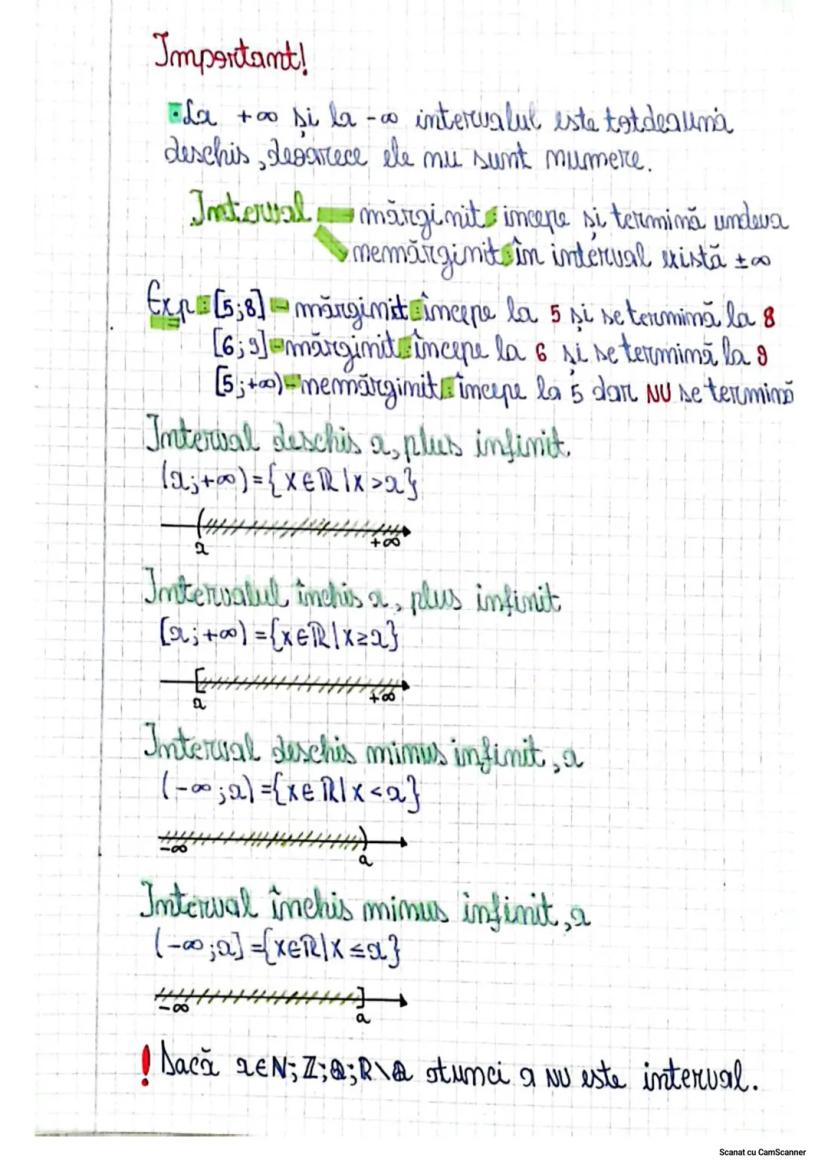 Important!
• La +∞ și la -∞ intervalul este totdeauna
deschis, deoarece ele nu sunt numere.
Interval mărginit: incepe si termină undeva
nemărginit: în interval există ±∞
Exp: [5;8] - mărginit: începe la 5 și se termină la 8
[6;9] - mărginit: începe la 6 și se termină la 9
[5;+∞) - nemărginit: începe la 5 dar NU se termină
Interval deschis a, plus infinit.
(a;+∞)={x∈ℝ|x>a}
a +∞
Intervalul închis a, plus infinit
[a;+∞)={x∈ℝ|x≥a}
a +∞
Interval deschis minus infinit, a
(-∞;a)={x∈ℝ|x<a}
-∞ a
Interval închis minus infinit, a
(-∞;a]={x∈ℝ|x≤a}
-∞ a
! Dacă x∈N;ℤ;ℚ;R\ℚ atunci a NU este interval.
Scanat cu CamScanner